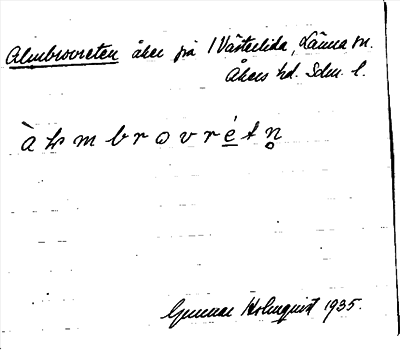 Almbrovreten åker på 1 Västerlida, Länna sn.
Åkers hd. Sdm. l.
à ƚ m b r o v r é t n̥
Gunnar Holmquist 1935.